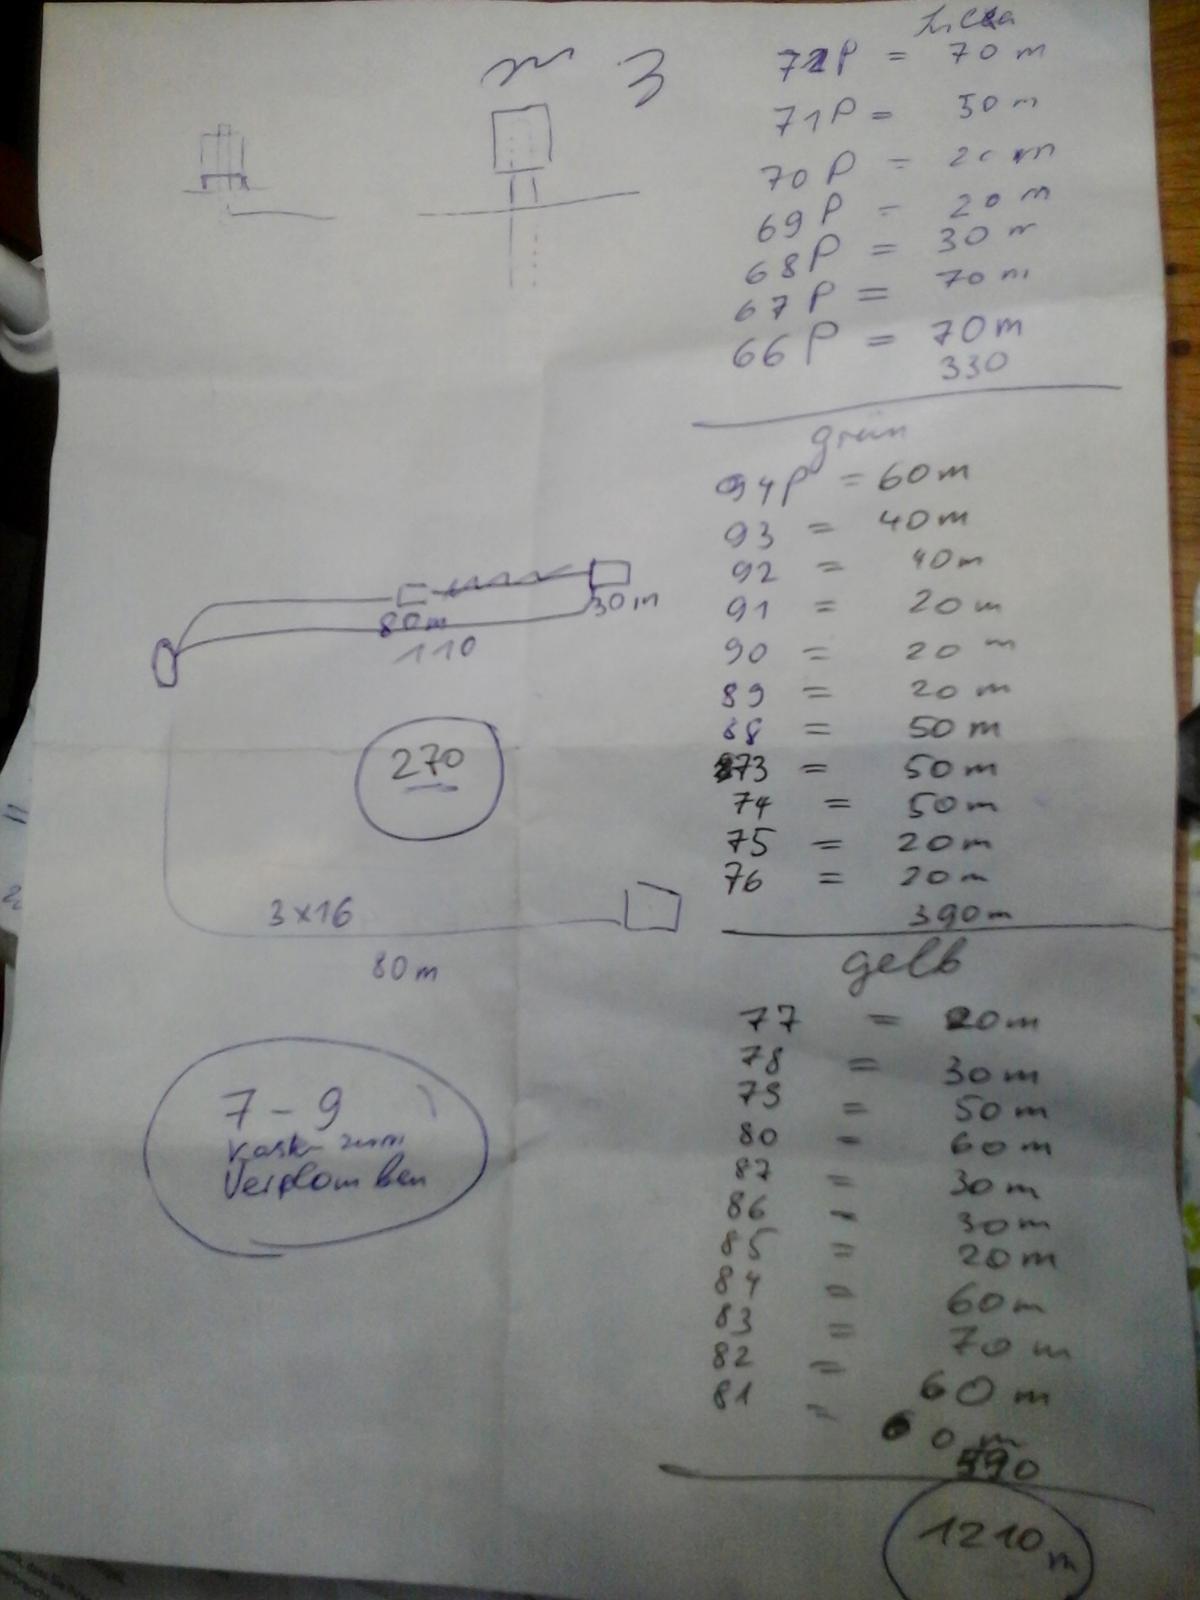 Lila
72P = 70 m
71P = 50 m
70P = 20 m
69P = 20 m
68P = 30 m
67P = 70 m
66P = 70 m
330
grün
94P = 60 m
93 = 40 m
92 = 40 m
91 = 20 m
90 = 20 m
89 = 20 m
88 = 50 m
73 = 50 m
74 = 50 m
75 = 20 m
76 = 20 m
390 m
gelb
77 = 20 m
78 = 30 m
79 = 50 m
80 = 60 m
87 = 30 m
86 = 30 m
85 = 20 m
84 = 60 m
83 = 70 m
82 = 60 m
81 = 60 m
490
1210 m
3
80 m
30 m
110
270
3x16
80 m
7-9
zum
Verplomben